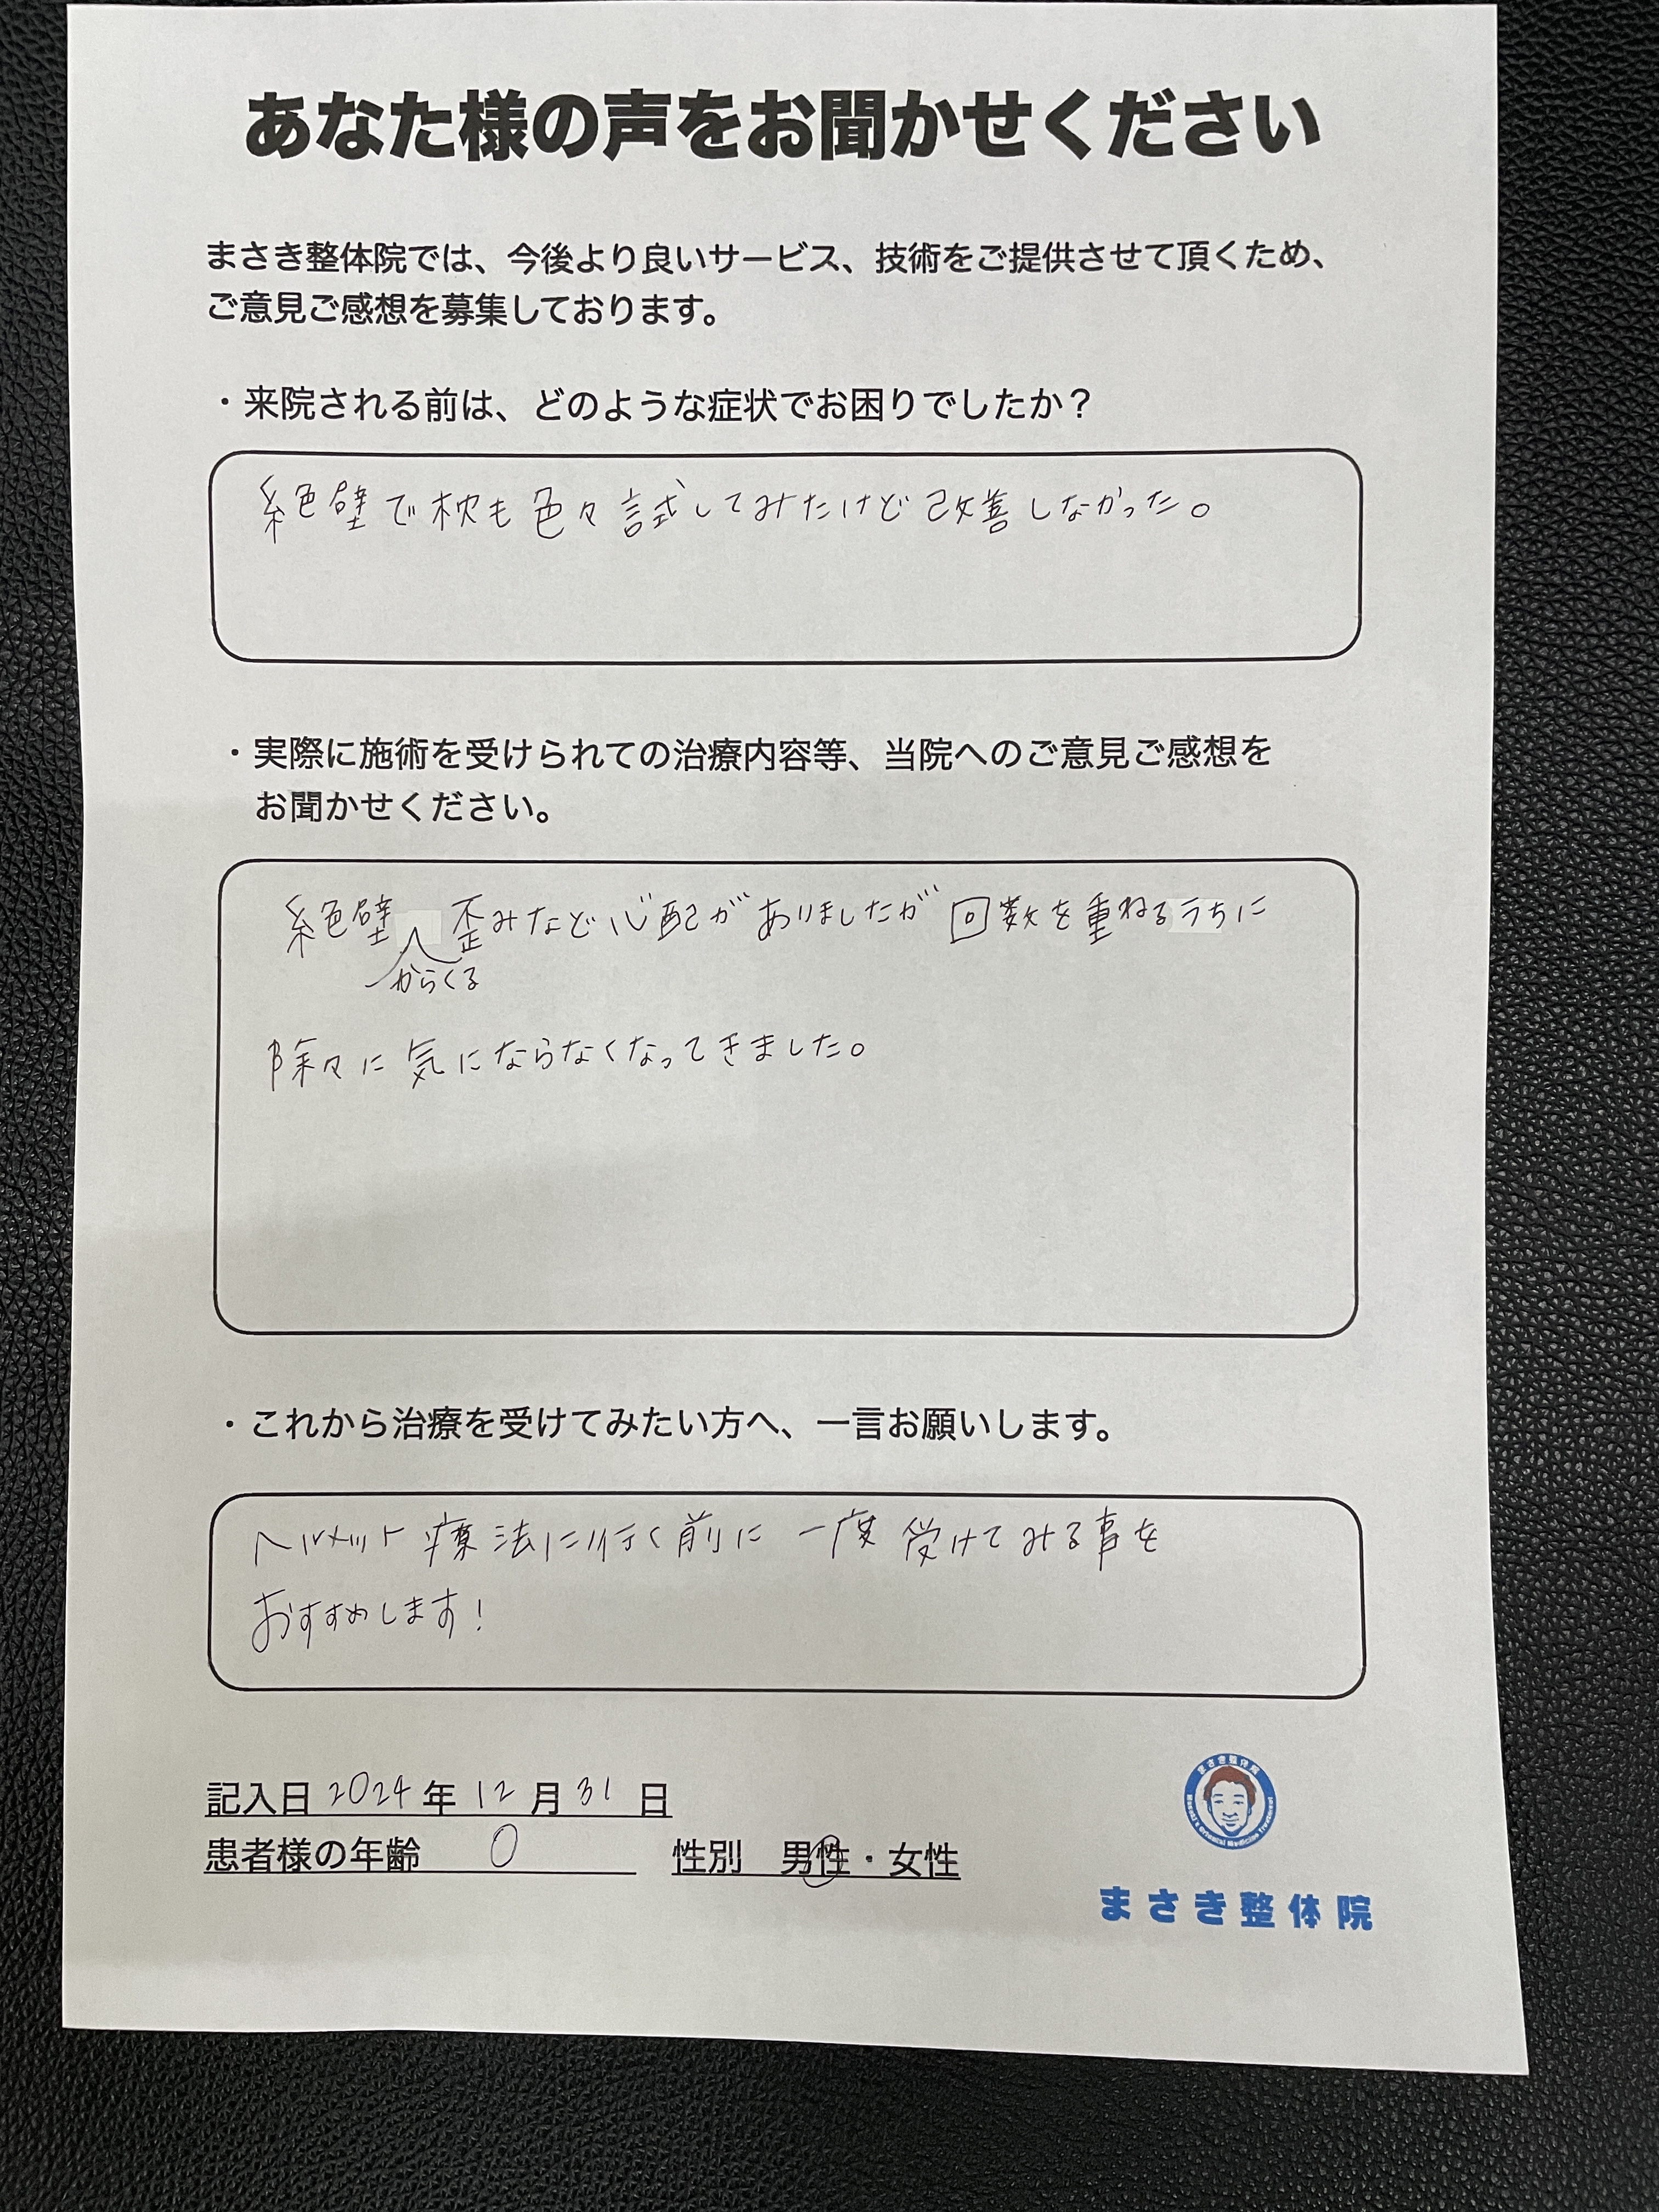 あなた様の声をお聞かせください
まさき整体院では、今後より良いサービス、技術をご提供させて頂くため、
ご意見ご感想を募集しております。
・来院される前は、どのような症状でお困りでしたか？
絶壁で枕も色々試してみたけど改善しなかった。
・実際に施術を受けられての治療内容等、当院へのご意見ご感想を
お聞かせください。
絶壁からくる歪みなど心配がありましたが回数を重ねるうちに
除々に気にならなくなってきました。
・これから治療を受けてみたい方へ、一言お願いします。
ヘルメット療法に行く前に一度受けてみる事を
おすすめします！
記入日 2024 年 12 月 31 日
患者様の年齢 0 性別 男性・女性
まさき整体院
Masaki's Oriental Medicine Treatment
まさき整体院